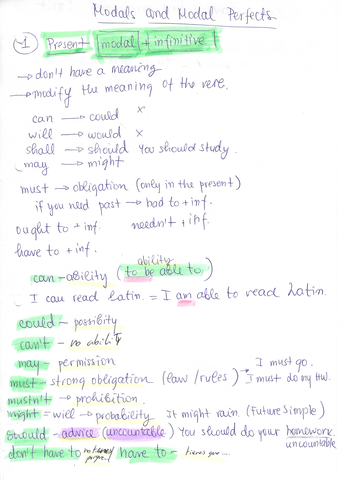 Modals and Modal Perfects
1 Present modal + infinitive
→ don't have a meaning
→ modify the meaning of the vere.
can → could x
will → would x
shall → should You should study.
may → might
must → obligation (only in the present)
if you need past → had to + inf.
ought to + inf. needn't + inf.
have to + inf.
ability
can - ability (to be able to)
I can read Latin. = I am able to read Latin.
could - possibity
can't - no ability
may - permission
must - strong obligation (law / rules) → I must go.
I must do my HW.
mustn't - prohibition.
might = will → probability It might rain. (Future Simple)
Should - advice (uncountable) You should do your homework
uncountable
don't have to have to - tienes que...